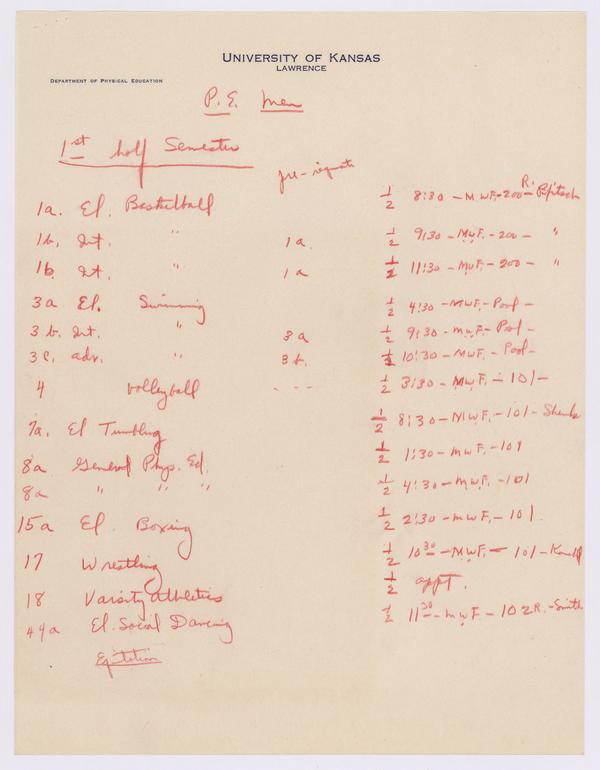 University of Kansas
Lawrence
Department of Physical Education
P.E. Men
1st half Semester
pre-requisite
1a. El. Basketball ½ 8:30 - MWF. - 200 - R.
1b. Int. " 1a. ½ 9:30 - MwF. - 200 - "
1b. Int. " 1a ½ 11:30 - MwF. - 200 - "
3a El. Swimming ½ 4:30 - MWF. - Pool -
3b. Int. " 3a ½ 9:30 - MwF - Pool -
3c. adv. " 3b. ½ 10:30 - MwF. - Pool -
4 Volleyball - - - ½ 3:30 - MwF. - 101 -
7a. El Tumbling ½ 8:30 - MWF. - 101 - Shenk
8a General Phys. Ed. ½ 1:30 - MWF - 101
8a " " " ½ 4:30 - MWF. - 101
15a El. Boxing ½ 2:30 - MWF. - 101.
17 Wrestling ½ 10 30 - MWF. - 101 -
18 Varsity Athletics ½ appt.
44a El. Social Dancing ½ 11 30 - MWF - 102 R. - Smith
Equitation